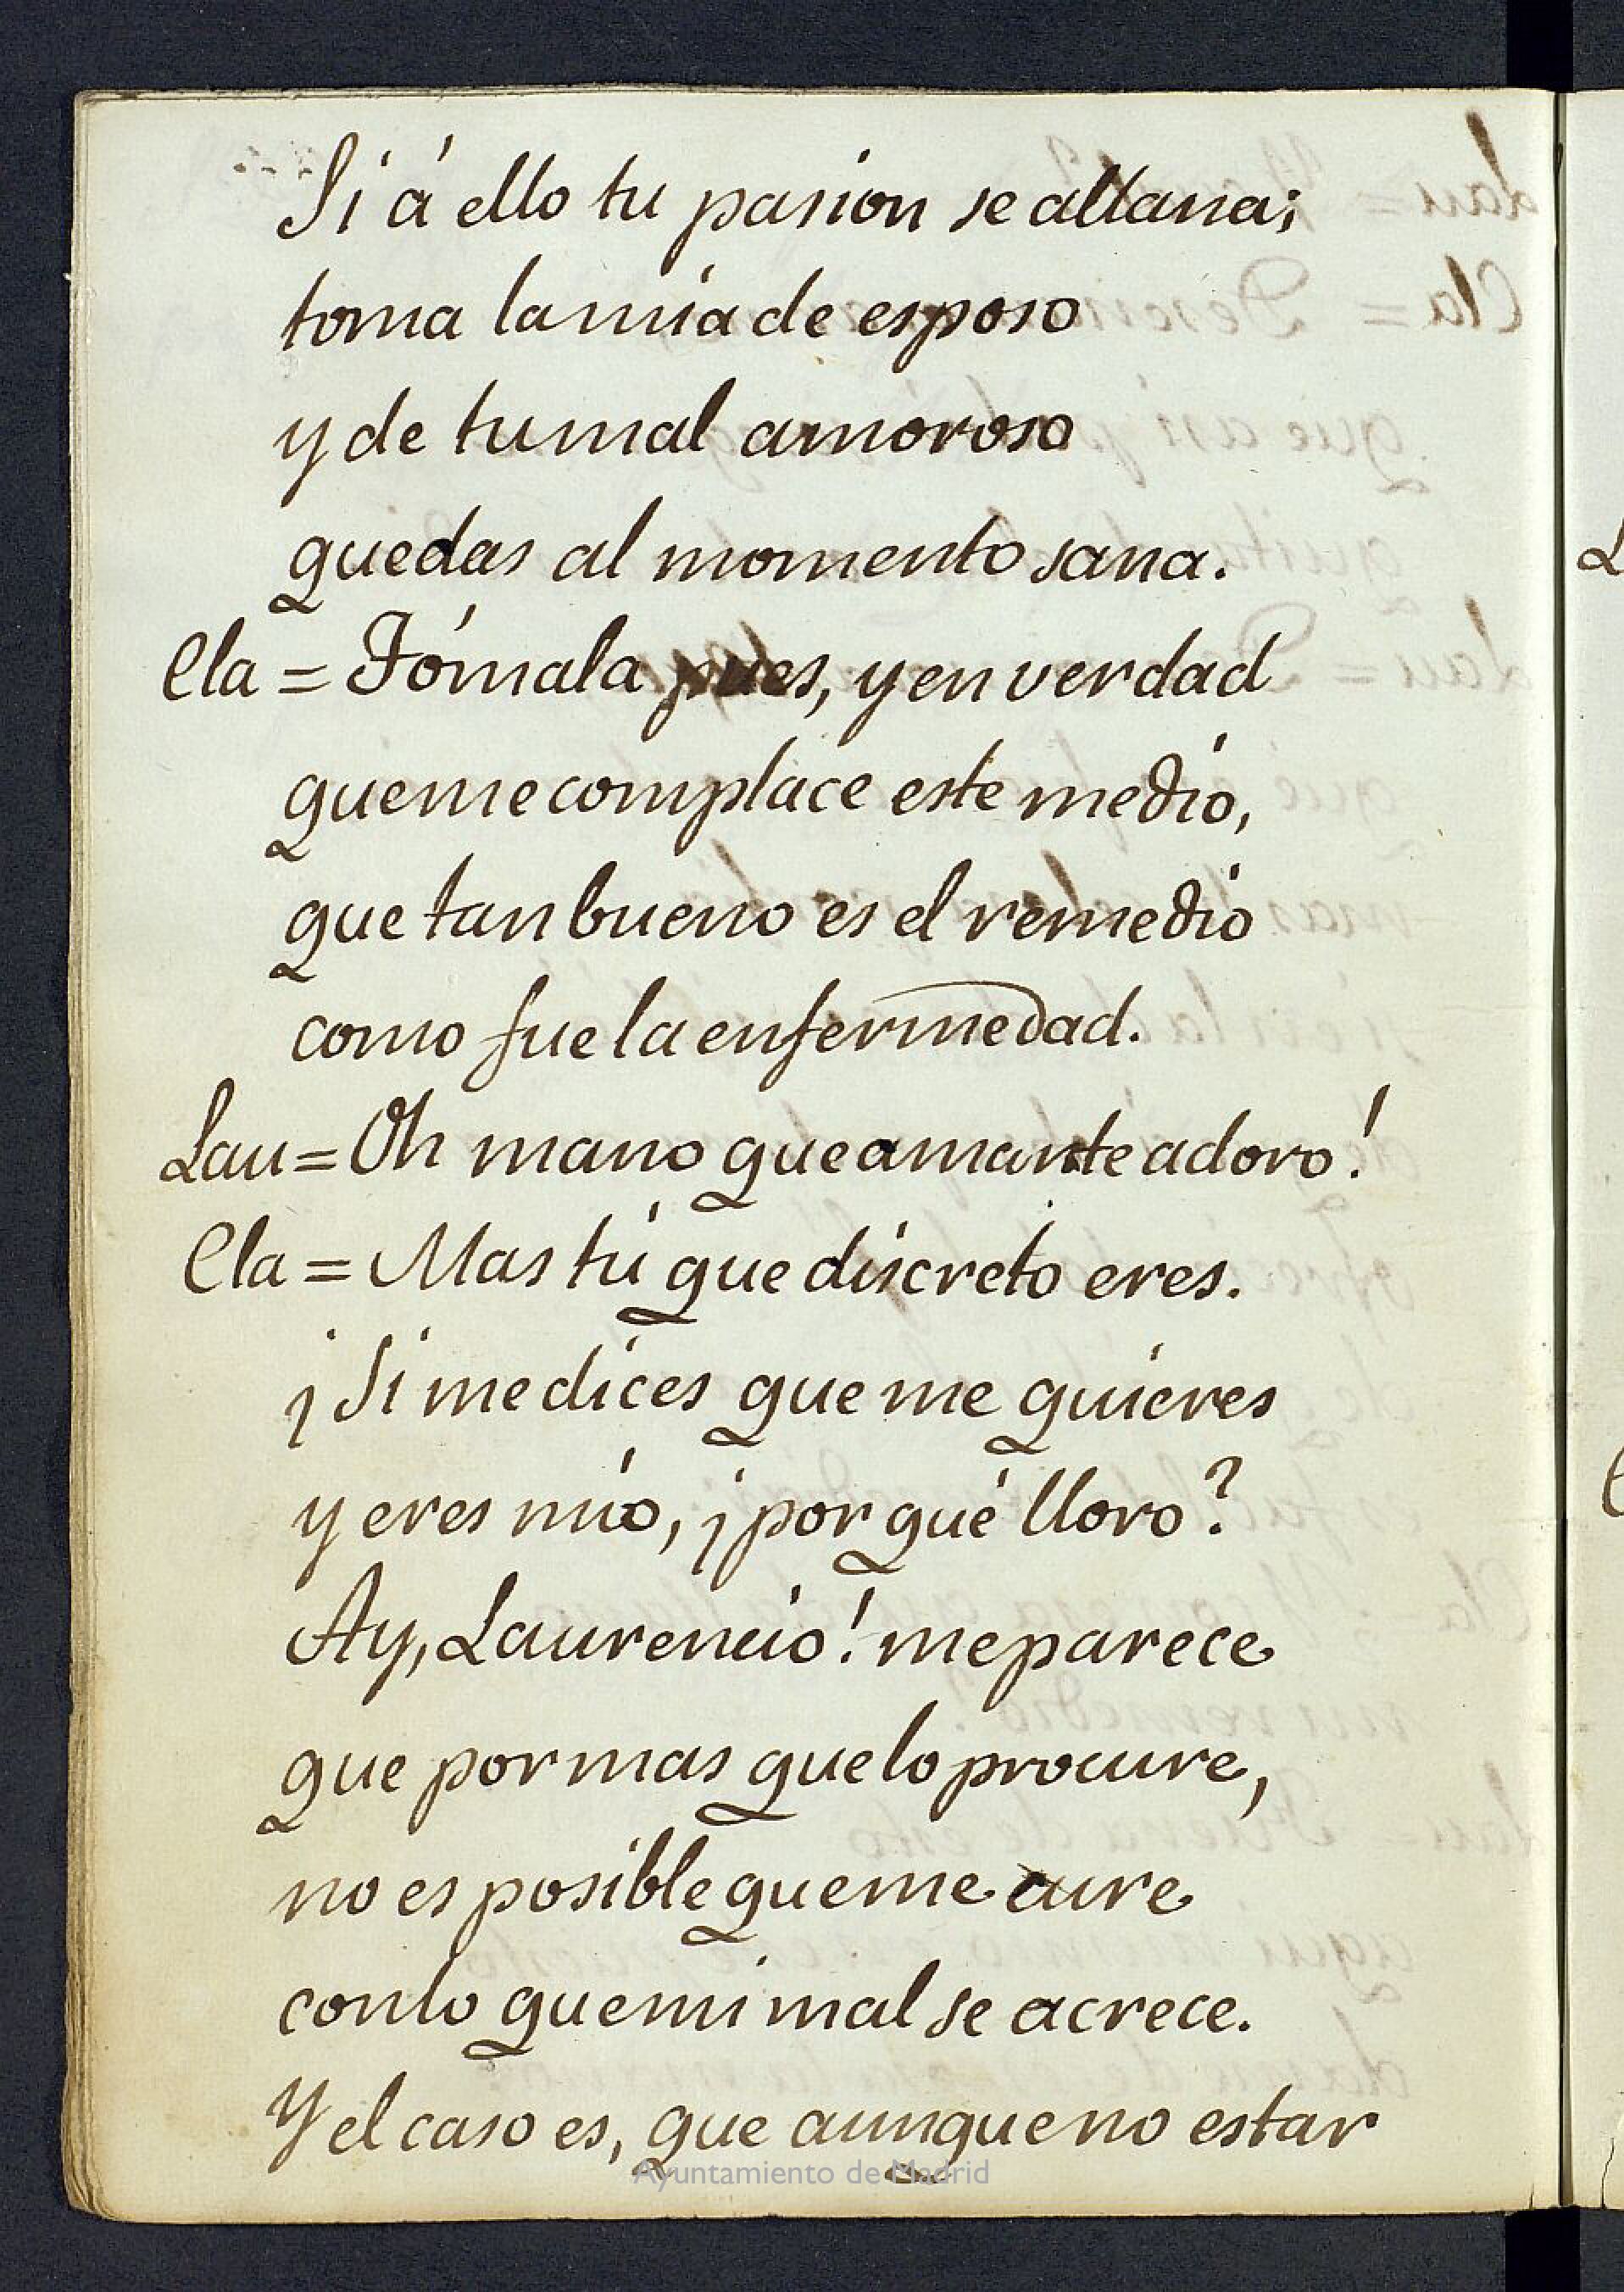 Si á ello tu pasion se allana;
toma la mia de esposo
y de tu mal amoroso
quedas al momento sana.
Cla = Tómala pues, y en verdad
que me complace este medio,
que tan bueno es el remedio
como fue la enfermedad.
Lau = Oh mano que amante adoro!
Cla = Mas tú que discreto eres.
¿Si me dices que me quieres
y eres mio, ¿por qué lloro?
Ay, Laurencio! me parece
que por mas que lo procure,
no es posible que me cure
con lo que mi mal se acrece.
Y el caso es, que aunque no estar
Ayuntamiento de Madrid